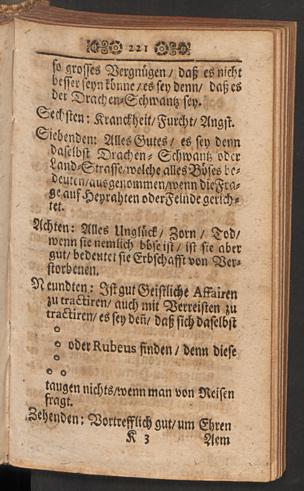 221
so grosses Vergnügen / daß es nicht
besser seyn könne / es sey denn / daß es
der Drachen-Schwantz sey.
Sechsten: Kranckheit / Furcht / Angst.
Siebenden: Alles Gutes / es sey denn
daselbst Drachen-Schwantz oder
Land-Strasse / welche alles Böses be-
deuten / ausgenommen / wenn die Fra-
ge auf Heyrahten oder Feinde gerich-
tet.
Achten: Alles Unglück / Zorn / Tod /
wenn sie nemlich böse ist / ist sie aber
gut / bedeutet sie Erbschafft von Ver-
storbenen.
Neundten: Ist gut Geistliche Affairen
zu tractiren / auch mit Verreisten zu
tractiren / es sey deñ / daß sich daselbst
oder Rubeus finden / denn diese
taugen nichts / wenn man von Reisen
fragt.
Zehenden: Vortrefflich gut / um Ehren
K 3 Aem